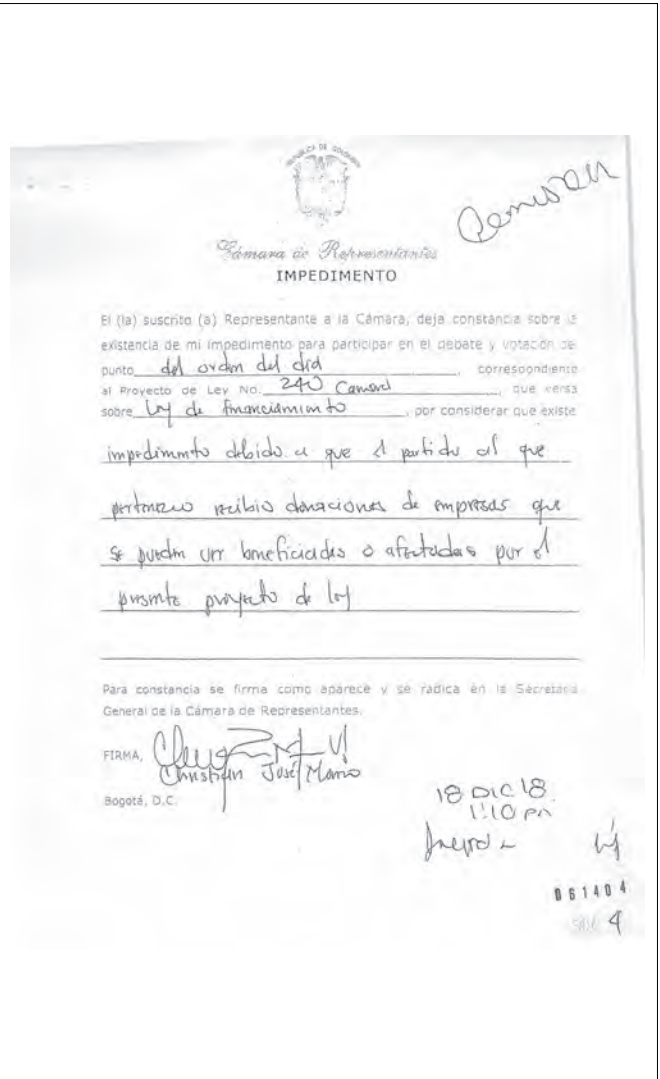 REPÚBLICA DE COLOMBIA
Cámara de Representantes
IMPEDIMENTO
El (la) suscrito (a) Representante a la Cámara, deja constancia sobre la
existencia de mi impedimento para participar en el debate y votación del
punto del orden del día, correspondiente
al Proyecto de Ley No. 240 Camara, que versa
sobre Ley de financiamiento, por considerar que existe
impedimento debido a que el partido al que
pertenezco recibio donaciones de empresas que
se pueden ver beneficiadas o afectadas por el
presente proyecto de ley
Para constancia se firma como aparece y se radica en la Secretaría
General de la Cámara de Representantes.
FIRMA,
Christian José
Bogotá, D.C.
18 DIC 18
1:10 pm
061404
4